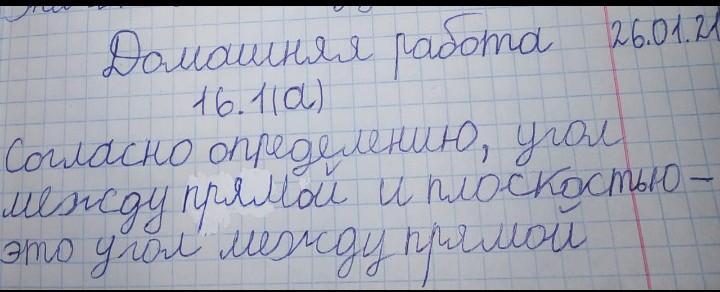 Домашняя работа 26.01.21
16.1(а)
Согласно определению, угол
между прямой и плоскостью –
это угол между прямой